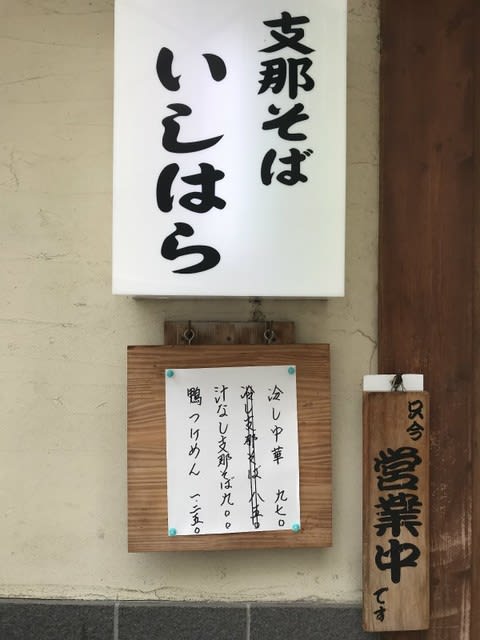 支那そば
いしはら
冷し中華 九七〇
冷し支那そば 八五〇
汁なし支那そば 九〇〇
鴨つけめん 一二五〇
只今
営業中
です